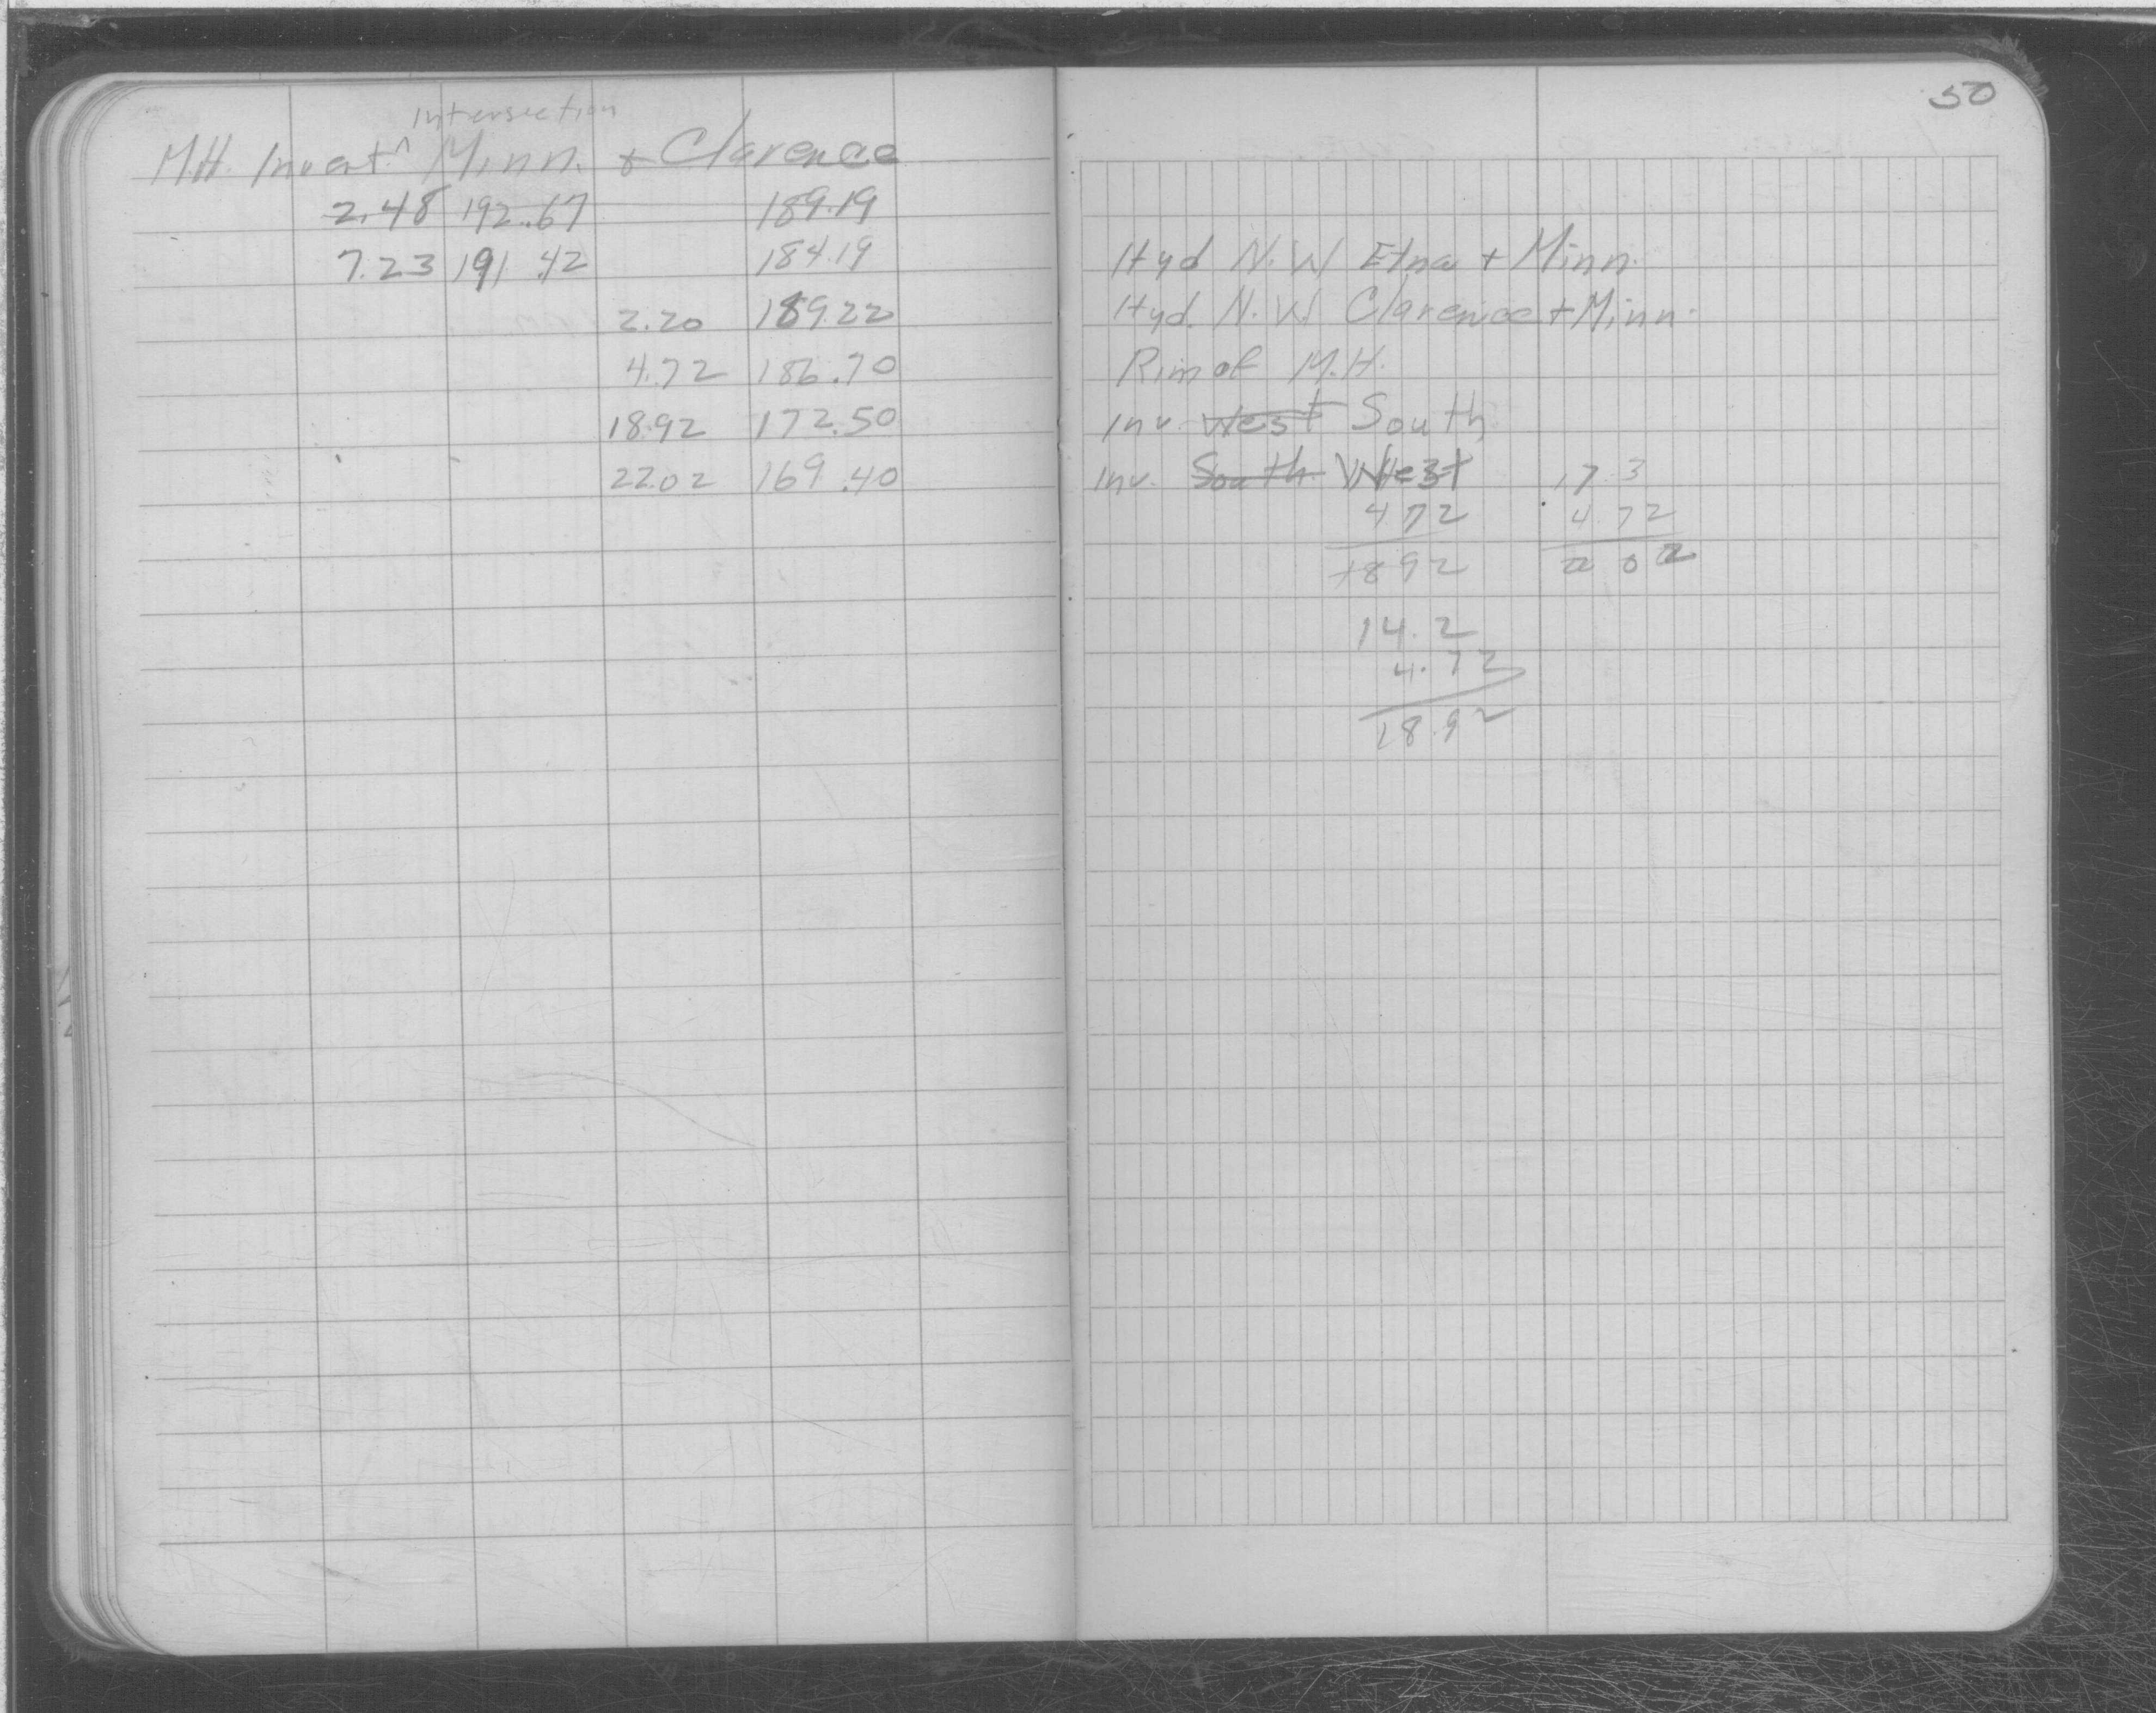 50
Intersection
M.H. Invert ^ Minn. + Clarence
2.48 192.67 189.19
7.23 191.42 184.19 Hyd N.W Etna + Minn.
2.20 189.22 Hyd. N.W Clarence + Minn.
4.72 186.70 Rim of M.H.
18.92 172.50 Inv. West South
22.02 169.40 Inv. South West 17.3
472 4.72
1892 22 0 2
14.2
4.72
18.92